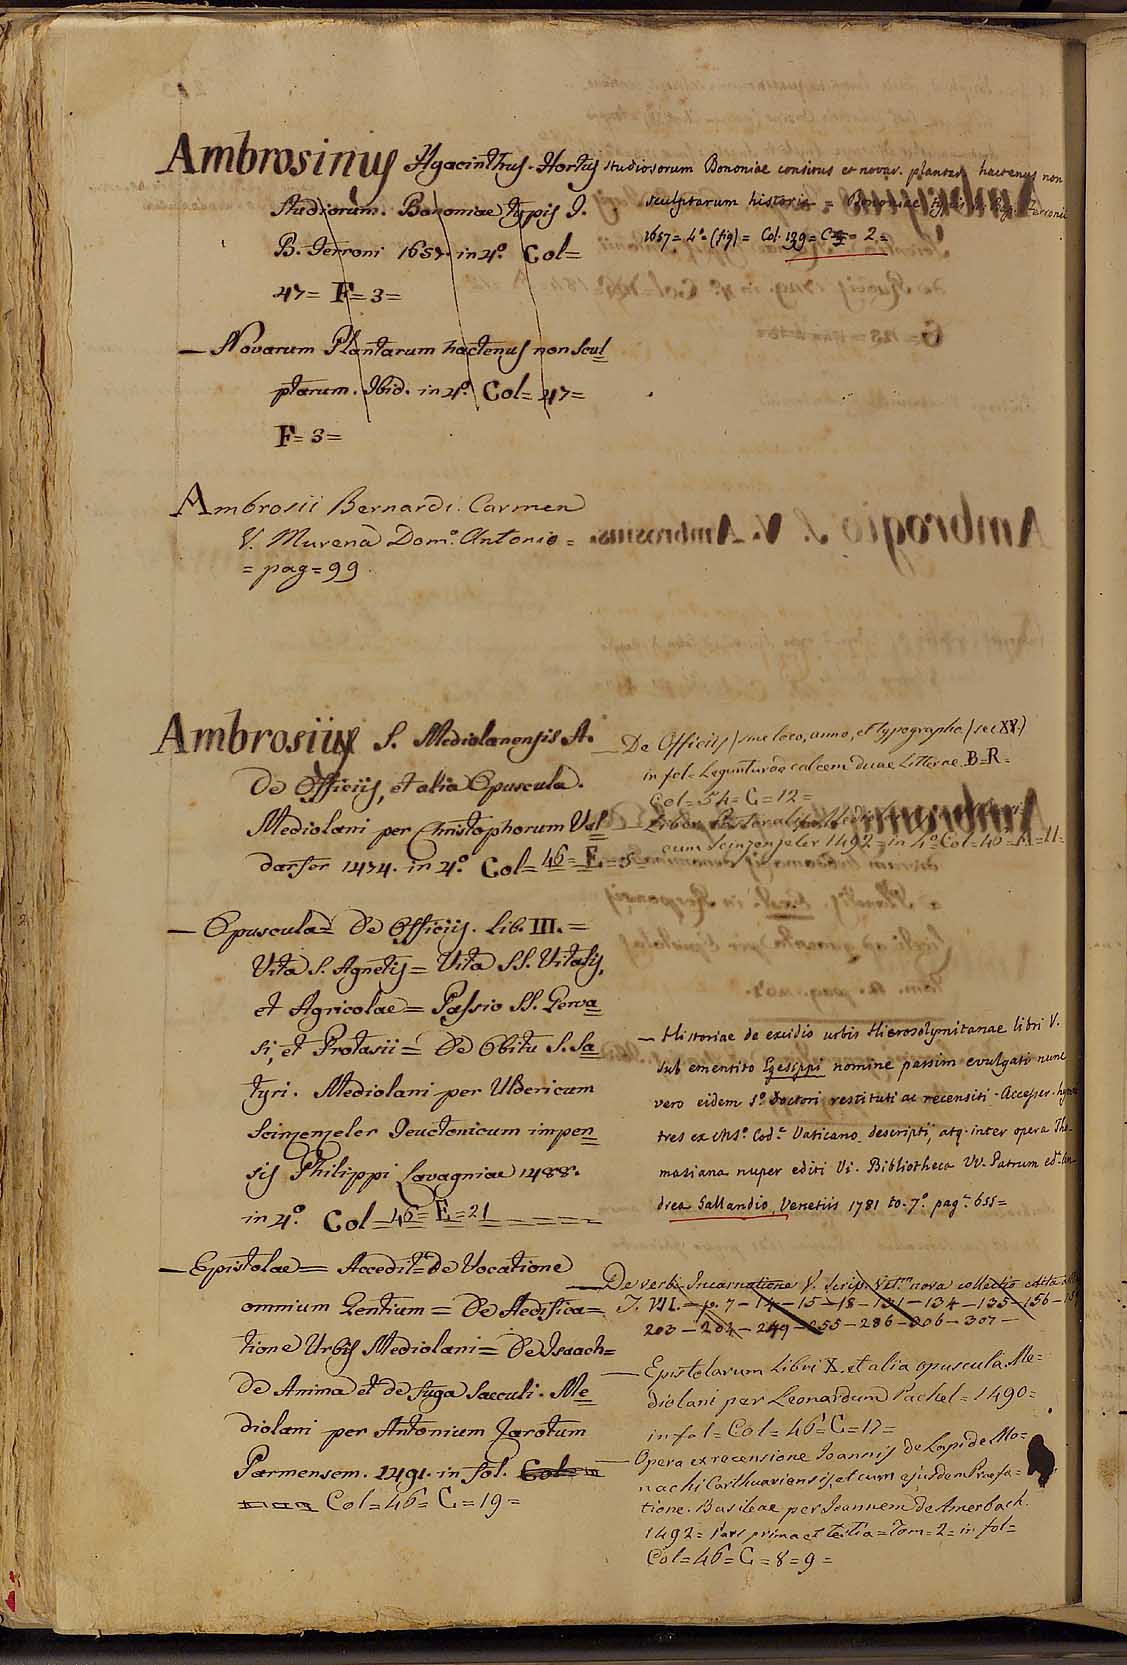 Ambrosinus Hyacinthus. Hortus
Studiorum. Bononiae typis J.
B. Ferroni 1657. in 4.° Col=
47= F=3=
— Novarum Plantarum hactenus non Scul
ptarum. Ibid. in 4.° Col= 47=
F=3=
Ambrosii Bernardi. Carmen
V. Murena Dom.° Antonio =
= pag = 99.
Ambrosius S. Mediolanensis A.
De Officiis, et alia Opuscula.
Mediolani per Christophorum Val
darfer 1474. in 4.° Col= 46= E=5=
— Opuscula= De Officiis. Lib. III. =
Vita S. Agnetis= Vita SS. Vitalis,
et Agricolae= Passio SS. Gerva
si, et Protasii= De Obitu S. Sa
tyri. Mediolani per Uldericum
Scinzenzeler Teuctonicum impen
sis Philippi Lavagniae 1488.
in 4.° Col=46=E=21
— Epistolae= Accedit= De Vocatione
omnium Gentium= De Aedifica=
tione Urbis Mediolani= De Isaach=
De Anima et de fuga Saeculi. Me
diolani per Antonium Zarotum
Parmensem. 1491. in fol. Col=
Col=46= C=19=
studiosorum Bononiae consitus et novar. plantar. hactenus non
sculptarum historia = Bononiae Ferronii
1657= 4°= (fig)= Col. 139= C= 2=
— De Officiis (sine loco, anno, et typographo) sec XV.)
in fol= Leguntur ad calcem duae Litterae. B=R=
Col= 54= C=12=
— Pastoralis
cum Scinzenzeler 1492= in 4.° Col=46= E=11=
— Historiae de excidio urbis Hierosolymitanae libri V.
sub ementito Egesippi nomine passim evulgati nunc
vero eidem S.° Doctori restituti ac recensiti. Accesser.
tres ex MS.° Cod.e Vaticano descripti, atq. inter opera Tho-
masiana nuper editi Vi. Bibliotheca VV. Patrum
drea Gallandio, Venetiis 1781 to. 7.° pag. 655=
— De verbi Incarnatione V. Scrip. Vet.m nova collectio
T. VII. — p. 7 — 14 — 15 — 18 — 131 — 134 — 135 — 156 —
203 — 204 — 249 — 255 — 286 — 306 — 307 —
— Epistolarum Libri X. et alia opuscula. Me=
diolani per Leonardum Pachel= 1490=
in fol= Col= 46= C=17=
— Opera ex recensione Joannis de Lapide Mo=
nachi Carthusiensis, et cum ejusdem Praefa=
tione. Basileae per Joannem de Amerbach.
1492= Pars prima et tertia= Tom=2= in fol=
Col=46= C=8=9=